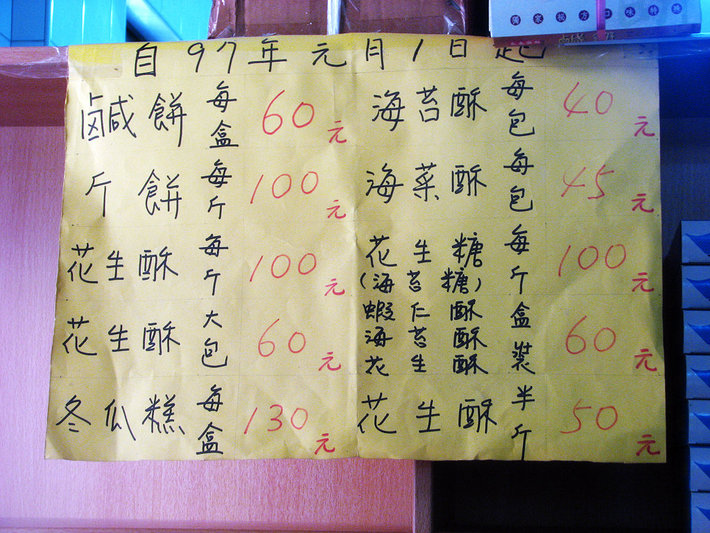 自97年元月1日起
鹵咸餅 每盒 60元
斤餅 每斤 100元
花生酥 每斤 100元
花生酥 大包 60元
冬瓜糕 每盒 130元
海苔酥 每包 40元
海菜酥 每包 45元
花生糖 每斤 100元
(海苔糖)
蝦仁酥 盒裝 60元
海苔酥
花生酥
花生酥 半斤 50元